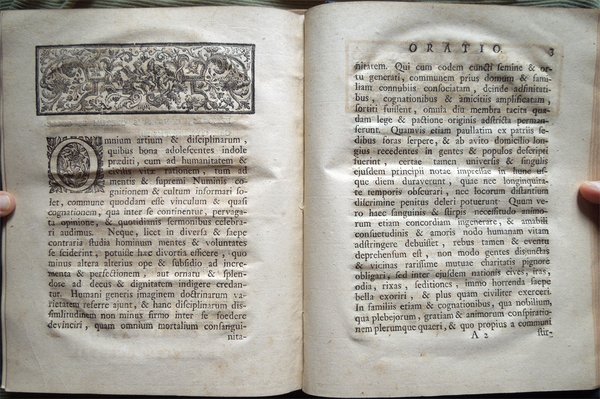 Omnium artium & disciplinarum,
quibus bona adolescentes indole
præditi, cum ad humanitatem &
civilis vitæ rationem, tum ad
mentis & supremi Numinis co-
gnitionem & cultum informari so-
let, commune quoddam esse vinculum & quasi
cognationem, qua inter se continentur, pervaga-
ta opinione, & quotidianis sermonibus celebra-
ri audimus. Neque, licet in diversa & sæpe
contraria studia hominum mentes & voluntates
se sciderint, potuisse hæc divortia efficere, quo
minus altera alterius ope & subsidio ad incre-
menta & perfectionem, aut ornatu & splendo-
re ad decus & dignitatem indigere credan-
tur. Humani generis imaginem doctrinarum va-
rietatem referre ajunt, & hanc disciplinarum dis-
similitudinem non minus firmo inter se foedere
devinciri, quam omnium mortalium consangui-
nita-
ORATIO. 3
nitatem. Qui cum eodem cuncti semine & or-
tu generati, communem prius domum & fami-
liam connubiis consociatam, deinde adfinitati-
bus, cognationibus & amicitiis amplificatam,
sortiti fuissent, omnia diu membra tacita qua-
dam lege & pactione originis adstricta perman-
serunt. Quamvis etiam paullatim ex patriis se-
dibus foras serpere, & ab avito domicilio lon-
gius recedentes in gentes & populos describi
fuerint, certæ tamen universis & singulis
ejusdem principi notæ impressæ in hunc us-
que diem duraverunt, quæ nec longinquita-
te temporis obscurari, nec locorum distantium
discrimine penitus deleri potuerunt. Quum ve-
ro hæc sanguinis & stirpis necessitudo animo-
rum etiam concordiam ingenerare, & amabili
consuetudinis & amoris nodo humanam vitam
adstringere debuisset, rebus tamen & eventu
deprehensum est, non modo gentes disjunctas
& vicinas rarissime mutuæ charitatis pignore
obligari, sed inter ejusdem nationis cives, iras,
odia, rixas, seditiones, immo horrenda sæpe
bella exoriri, & plus quam civiliter exerceri.
In familiis etiam & cognationibus, qua nobilium,
qua plebejorum, gratiam & animorum conspiratio-
nem plerumque quæri, & quo propius a communi
A 2 stir-